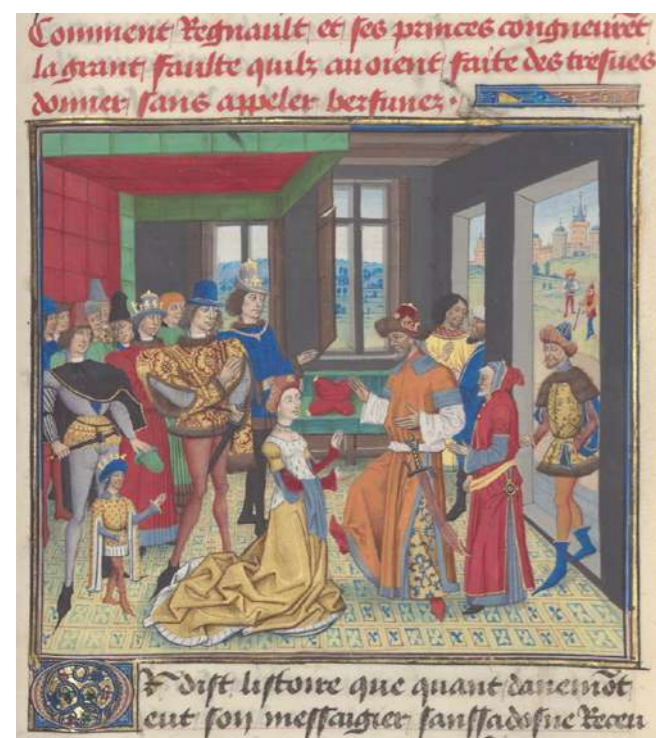 Comment Regnault et ses princes congneurēt
la grant faulte quilz auoient faite des tresues
donner sans appeler berfunez .
Or dist listoire que quant danemōt
eut son messaigier sanssadosne Receu